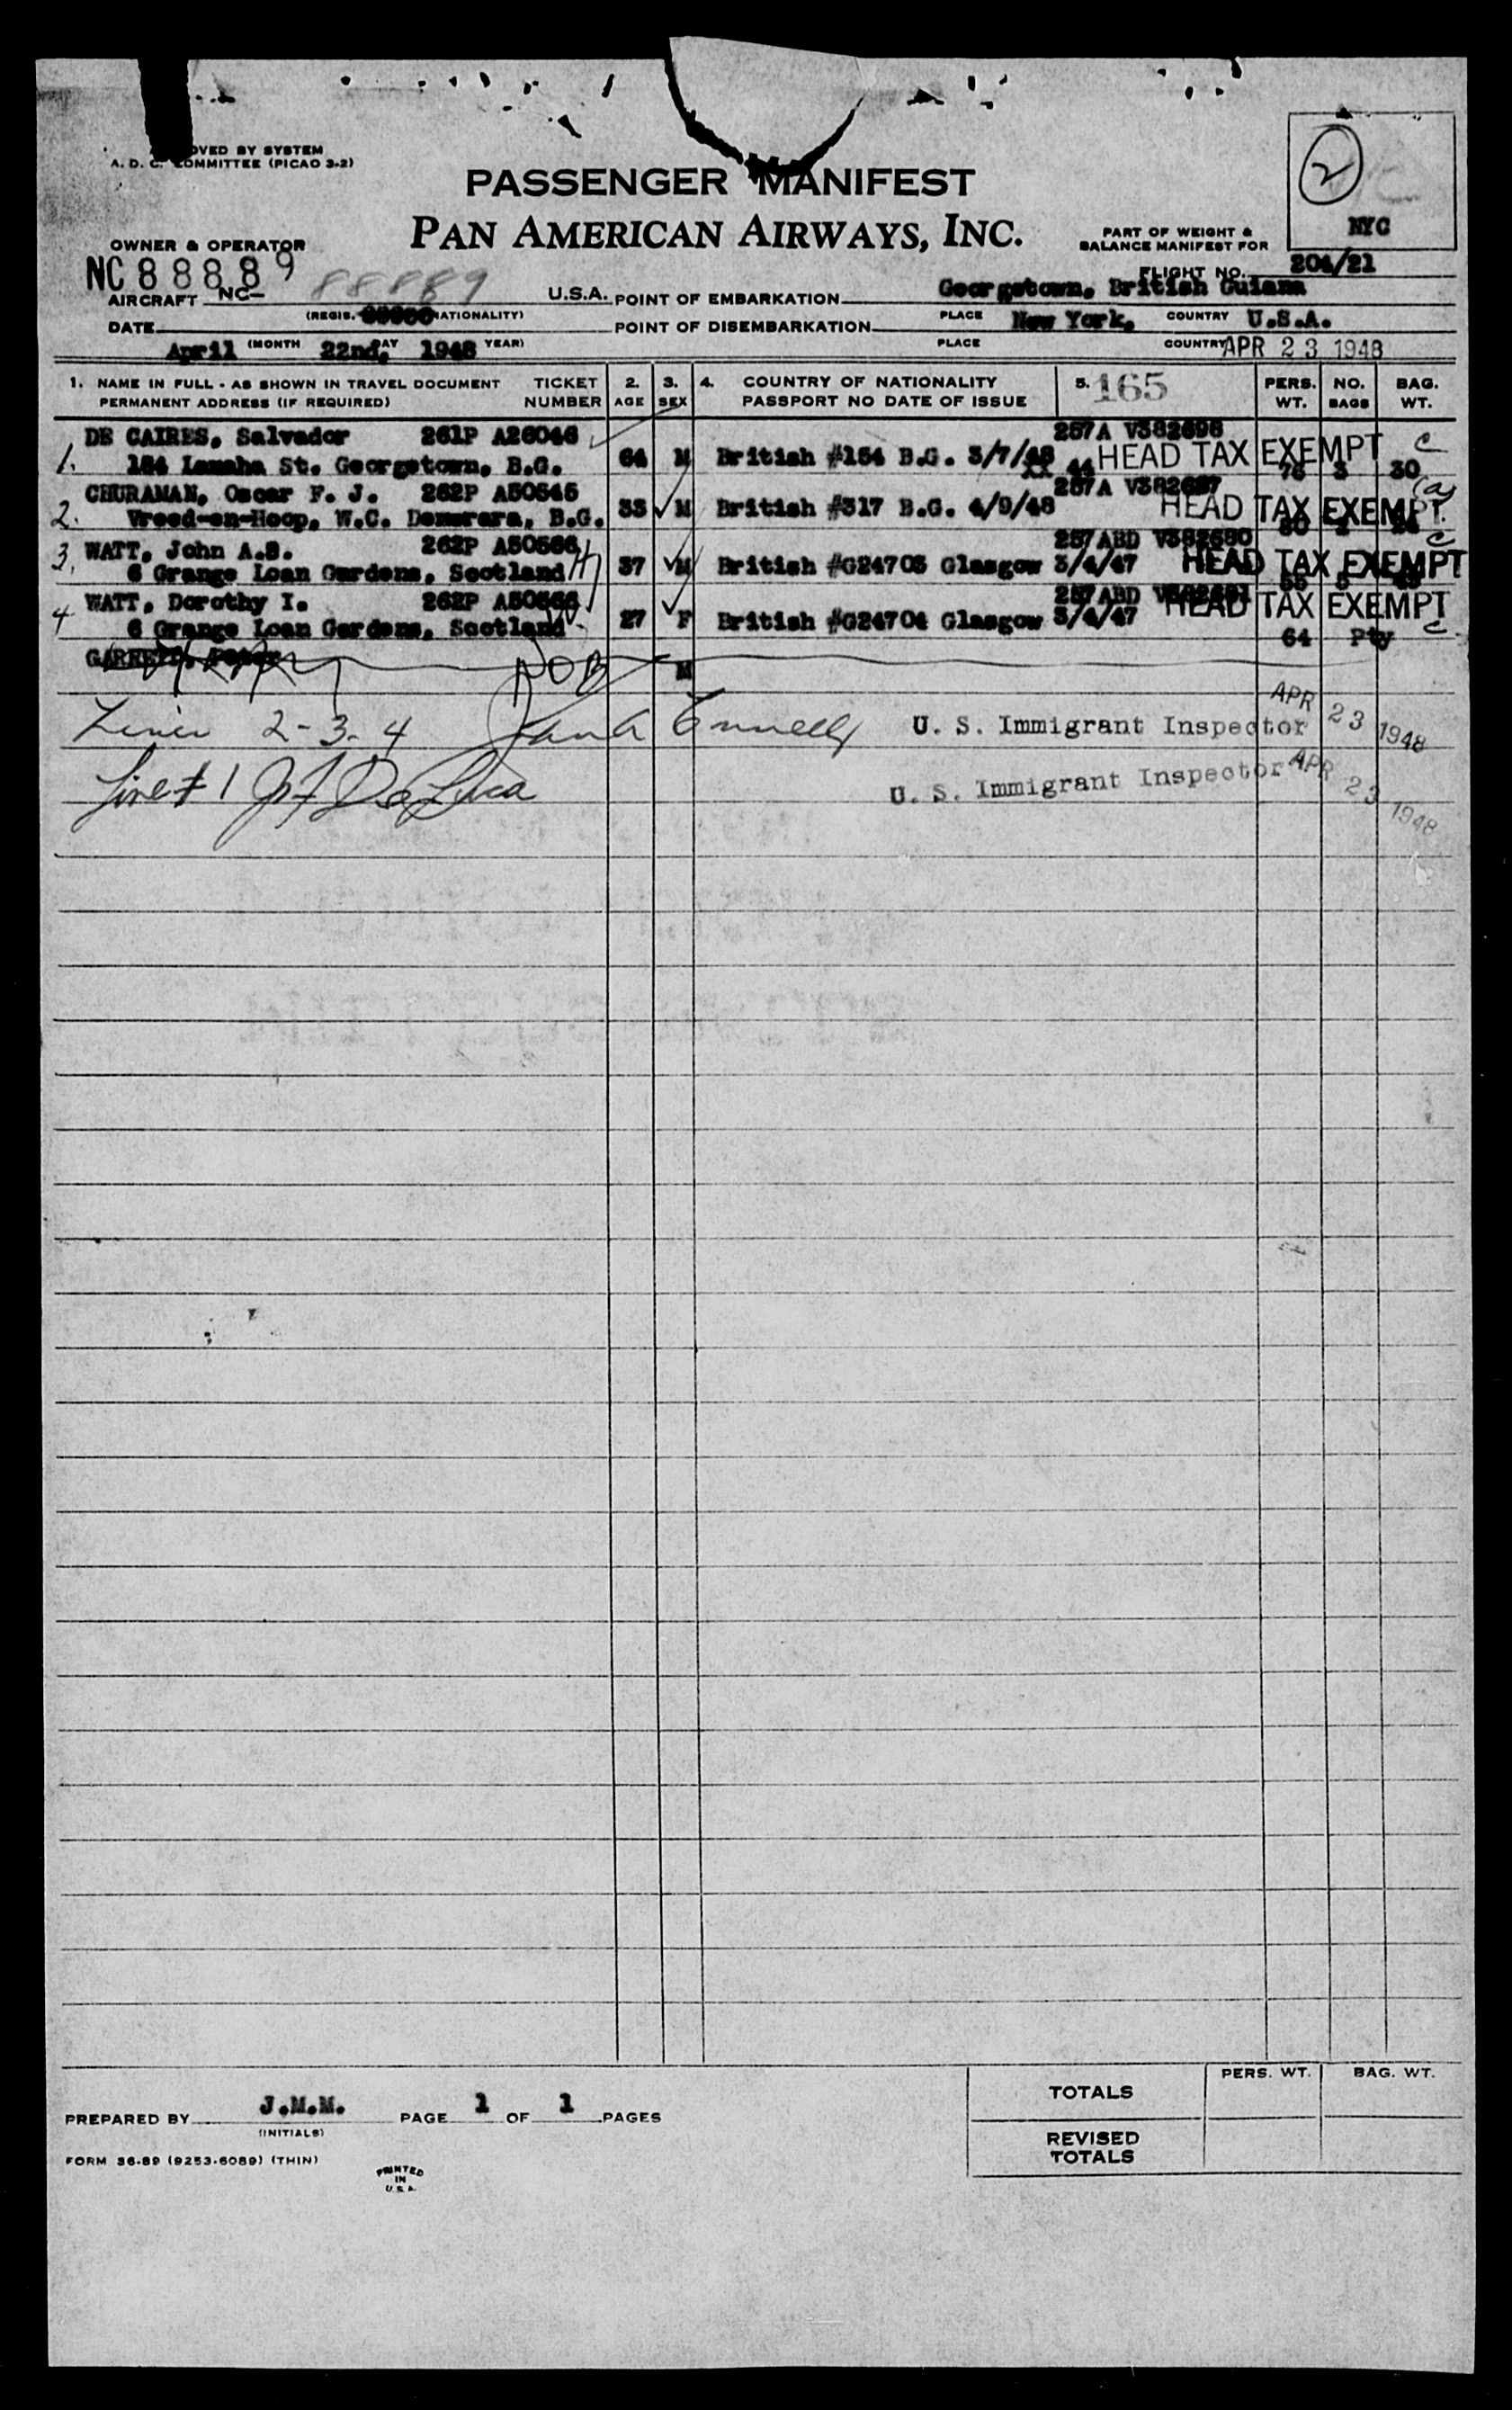 OVED BY SYSTEM
A. D. C. COMMITTEE (PICAO 3-2)
2
PASSENGER MANIFEST
NYC
PAN AMERICAN AIRWAYS, INC.
PART OF WEIGHT &
BALANCE MANIFEST FOR
OWNER & OPERATOR
NC 88889
FLIGHT NO. 204/21
AIRCRAFT NC- 88889 U.S.A. POINT OF EMBARKATION Georgetown, British Guiana
(REGIS. NATIONALITY) PLACE COUNTRY
DATE POINT OF DISEMBARKATION New York, U.S.A.
April (MONTH 22nd, DAY 1948 YEAR) PLACE COUNTRY APR 23 1948
1. NAME IN FULL - AS SHOWN IN TRAVEL DOCUMENT TICKET 2. 3. 4. COUNTRY OF NATIONALITY 5. 165 PERS. NO. BAG.
PERMANENT ADDRESS (IF REQUIRED) NUMBER AGE SEX PASSPORT NO DATE OF ISSUE WT. BAGS WT.
DE CAIRES, Salvador 261P A26046 257A V382698
1. 184 Lamaha St. Georgetown, B.G. 64 M British #154 B.G. 3/7/ 44 HEAD TAX EXEMPT C
76 3 30
CHURAMAN, Oscar F. J. 262P A50545 257A V382687
2. Vreed-en-Hoop, W.C. Demerara, B.G. 33 M British #317 B.G. 4/9/48 HEAD TAX EXEMPT
3. WATT, John A.S. 262P A50566 257ABD V382680 C
6 Grange Loan Gardens, Scotland 37 M British #G24703 Glasgow 3/4/47 HEAD TAX EXEMPT
4 WATT, Dorothy I. 262P A50566 257ABD
6 Grange Loan Gardens, Scotland 27 F British #G24704 Glasgow 3/4/47 HEAD TAX EXEMPT C
64 Pty
NOB M
Lines 2-3-4 U. S. Immigrant Inspector APR 23 1948
Line # 1 J F De Luca U. S. Immigrant Inspector APR 23 1948
PERS. WT. BAG. WT.
TOTALS
PREPARED BY J.M.M. PAGE 1 OF 1 PAGES
(INITIALS)
REVISED
TOTALS
FORM 36-89 (9253-6089) (THIN)
PRINTED
IN
U.S.A.